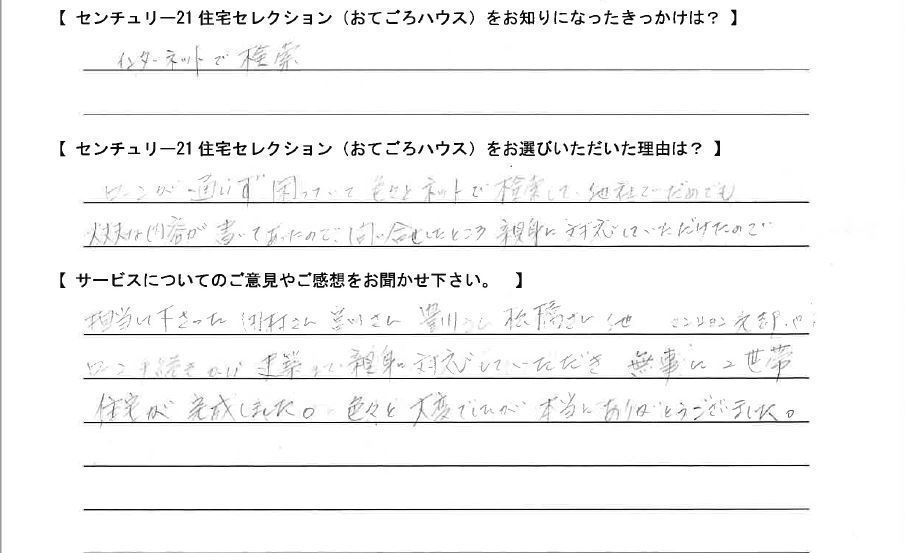 【 センチュリー21 住宅セレクション（おてごろハウス）をお知りになったきっかけは？ 】
インターネットで検索
【 センチュリー21 住宅セレクション（おてごろハウス）をお選びいただいた理由は？ 】
ローンが 通らず 困っていて 色々とネットで検索して、他社でだめでも
大丈夫な内容が 書いてあったので、問い合せしたところ 親身に対応していただけたので
【 サービスについてのご意見やご感想をお聞かせ下さい。　】
担当して下さった 河村さん 豊川さん 松橋さん 他
ローン手続き 建築まで 親身に対応していただき 無事に 2世帯
住宅が 完成しました。色々と 大変でしたが 本当にありがとうございました。